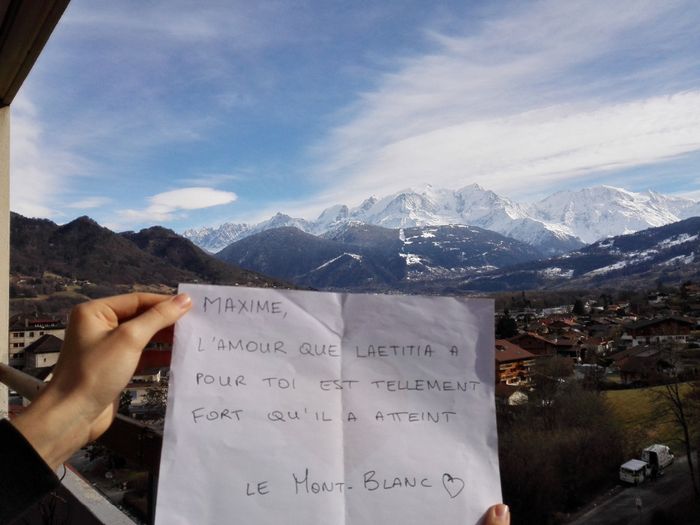 MAXIME,
L'AMOUR QUE LAETITIA A
POUR TOI EST TELLEMENT
FORT QU'IL A ATTEINT
LE MONT-BLANC ♡